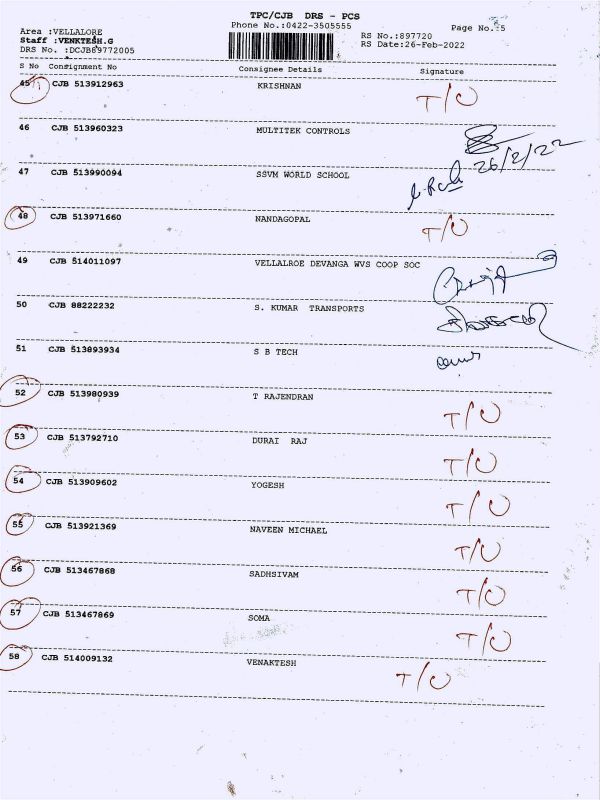 TPC/CJB DRS - PCS
Phone No.:0422-3505555
Page No.:5
Area :VELLALORE
Staff :VENKTESH.G
DRS No. :DCJB89772005
RS No.:897720
RS Date:26-Feb-2022
S No Consignment No Consignee Details Signature
45 CJB 513912963 KRISHNAN T/O
46 CJB 513960323 MULTITEK CONTROLS
26/2/22
47 CJB 513990094 SSVM WORLD SCHOOL
48 CJB 513971660 NANDAGOPAL T/O
49 CJB 514011097 VELLALROE DEVANGA WVS COOP SOC
50 CJB 88222232 S. KUMAR TRANSPORTS
51 CJB 513893934 S B TECH
52 CJB 513980939 T RAJENDRAN T/O
53 CJB 513792710 DURAI RAJ T/O
54 CJB 513909602 YOGESH T/O
55 CJB 513921369 NAVEEN MICHAEL T/O
56 CJB 513467868 SADHSIVAM T/O
57 CJB 513467869 SOMA T/O
58 CJB 514009132 VENAKTESH T/O